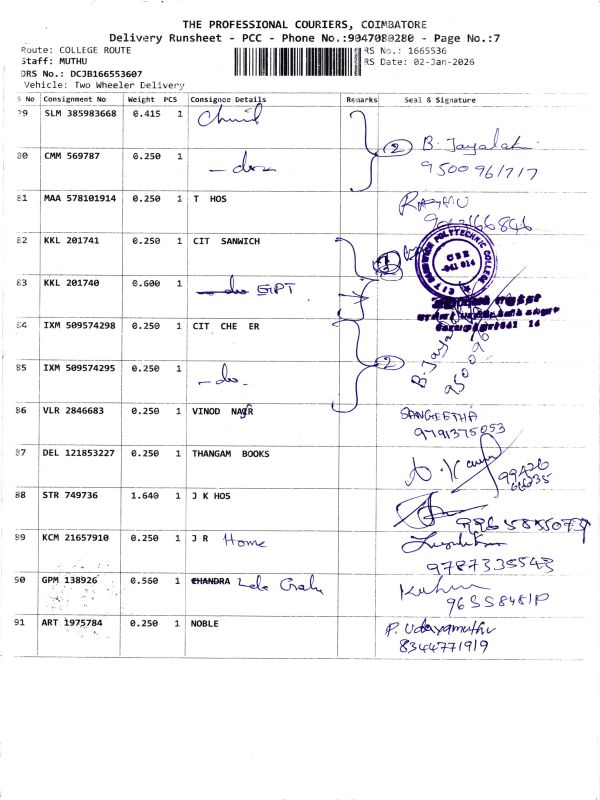 THE PROFESSIONAL COURIERS, COIMBATORE
Delivery Runsheet - PCC - Phone No.:9047080280 - Page No.:7
Route: COLLEGE ROUTE
RS No.: 1665536
Staff: MUTHU
RS Date: 02-Jan-2026
DRS No.: DCJB166553607
Vehicle: Two Wheeler Delivery
S No Consignment No Weight PCS Consignee Details Remarks Seal & Signature
79 SLM 385983668 0.415 1
80 CMM 569787 0.250 1 - do - 2 B. Jayalak
95009 61717
81 MAA 578101914 0.250 1 T HOS
82 KKL 201741 0.250 1 CIT SANWICH
CIT SANDWICH POLYTECHNIC COLLEGE
CBE
-641 014
83 KKL 201740 0.600 1 do GPT
84 IXM 509574298 0.250 1 CIT CHE ER
85 IXM 509574295 0.250 1 - do - 2 B. Jayalak
86 VLR 2846683 0.250 1 VINOD NAIR SANGEETHA
9791375053
87 DEL 121853227 0.250 1 THANGAM BOOKS
99426
66635
88 STR 749736 1.640 1 J K HOS
9965855079
89 KCM 21657910 0.250 1 J R Home
9787335543
90 GPM 138926 0.560 1 CHANDRA
91 ART 1975784 0.250 1 NOBLE P. Udayamuthu
8344771919